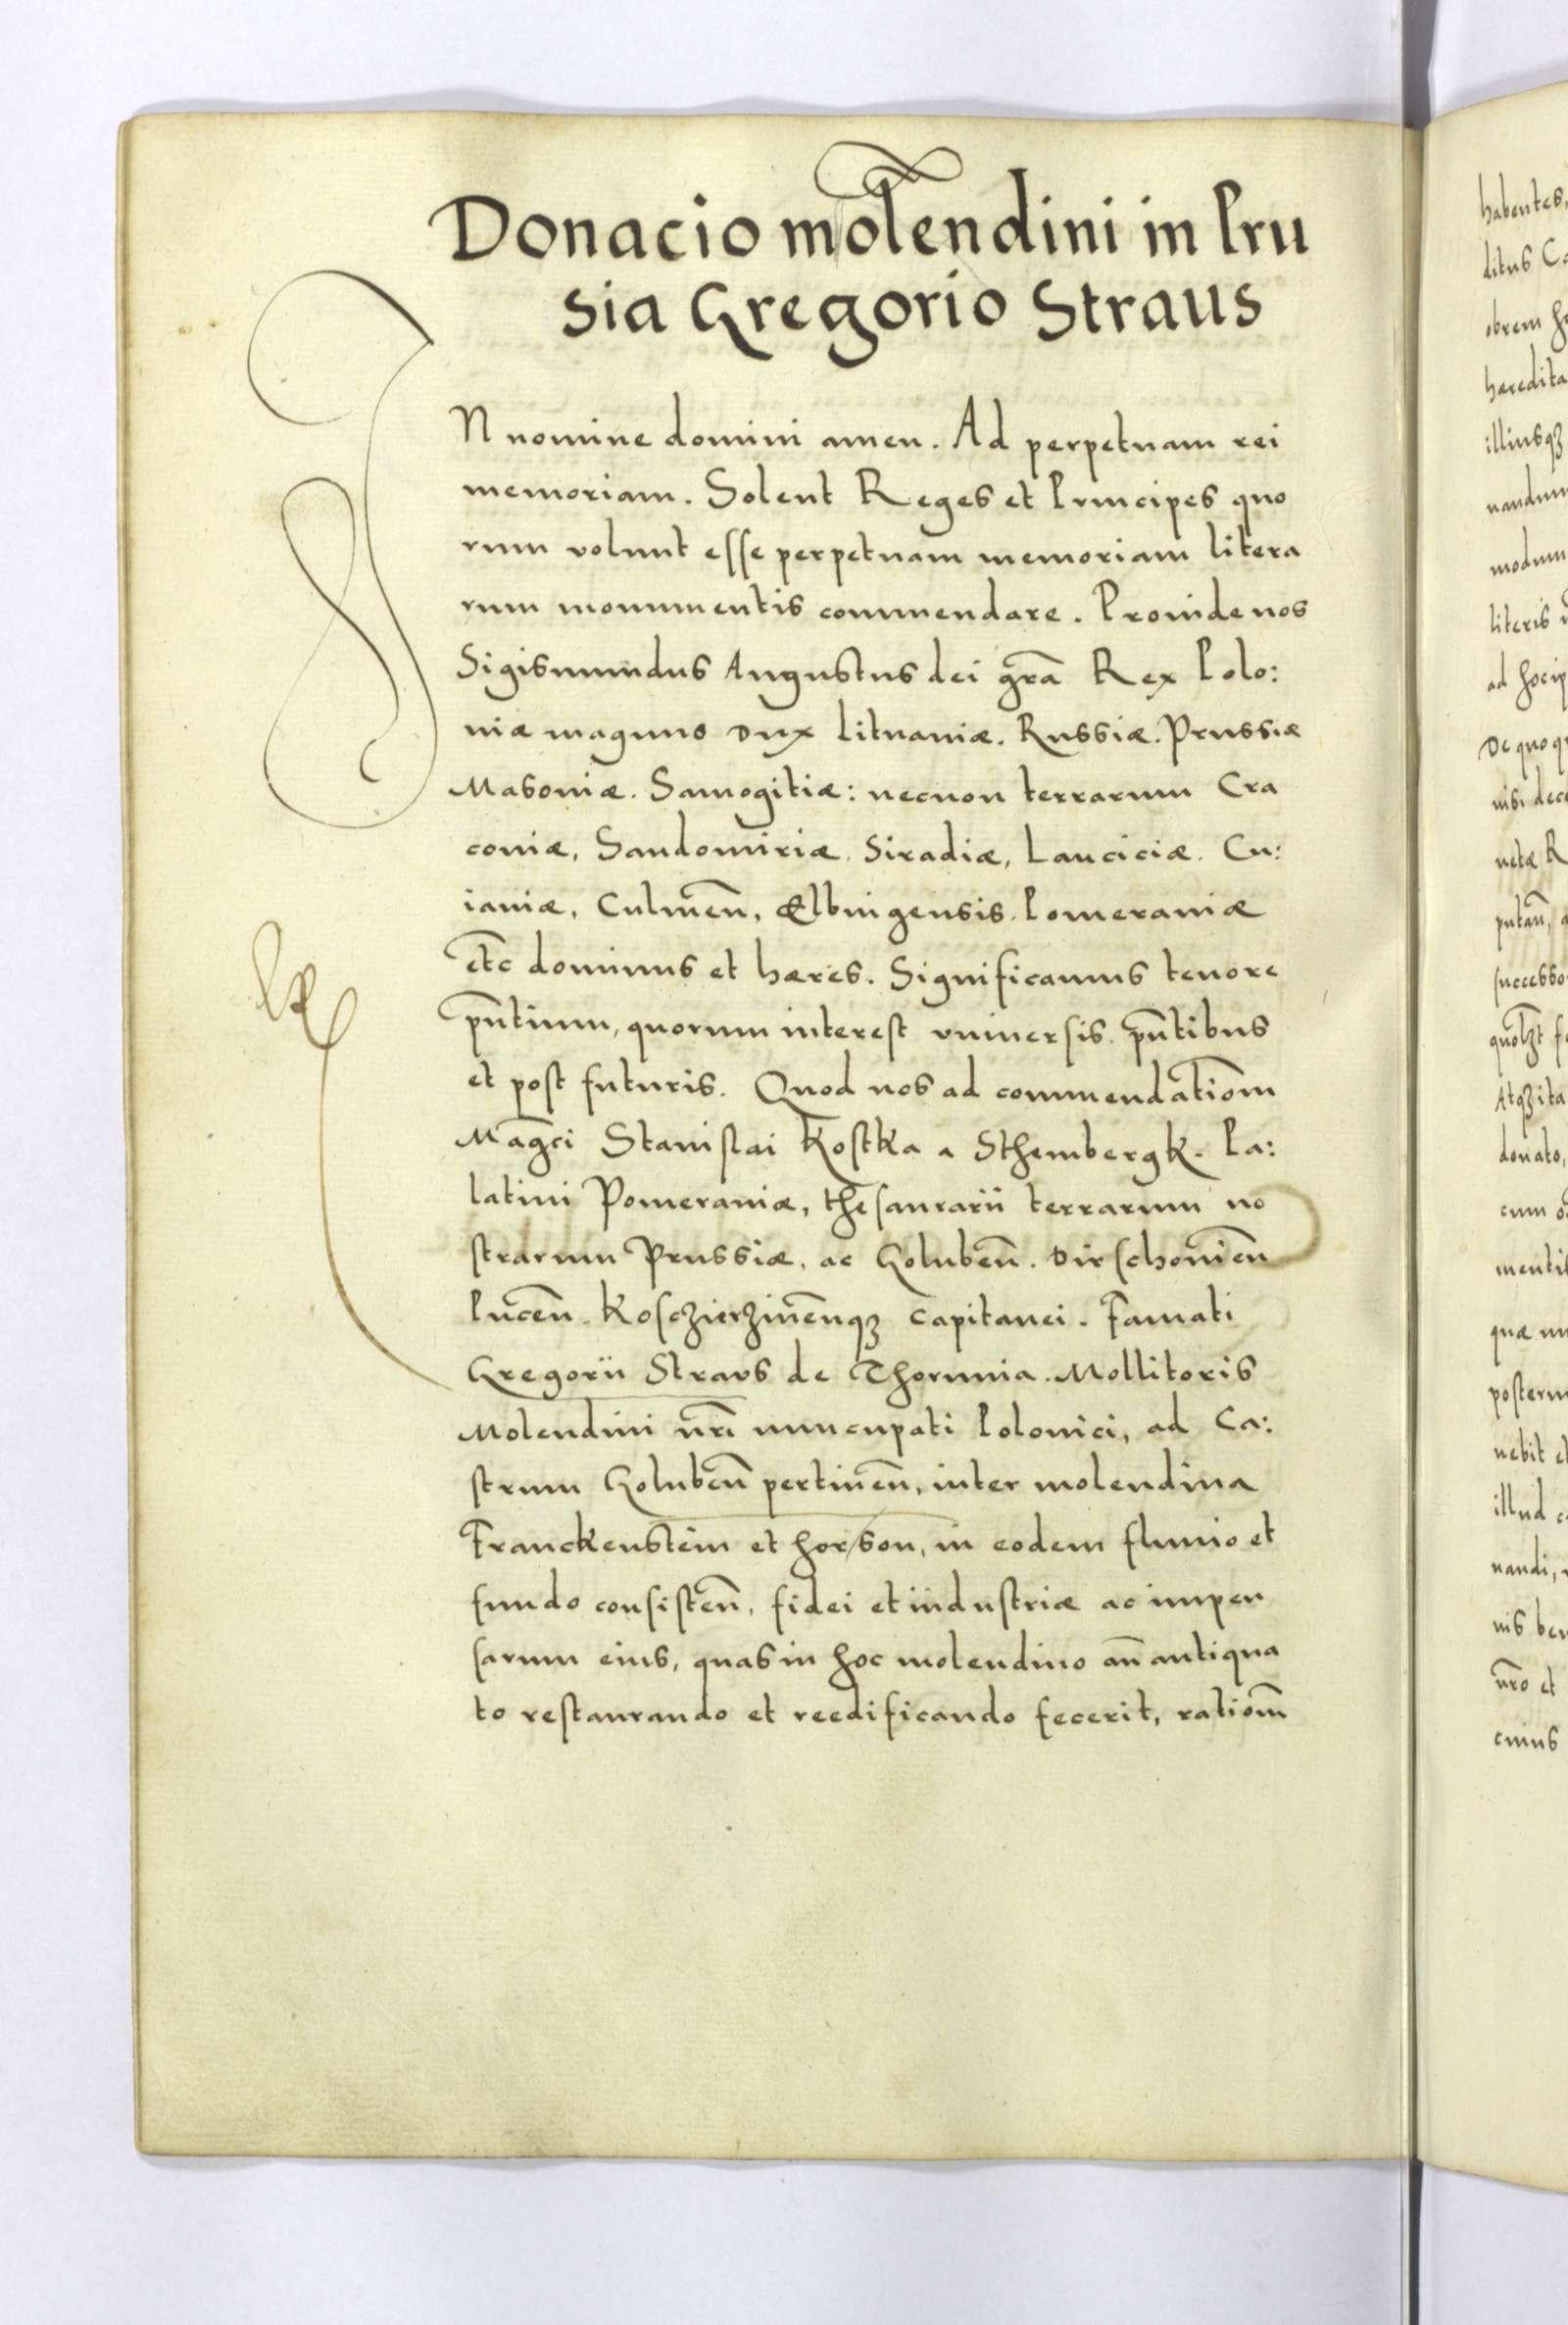 Donacio molendini in Pru
sia Gregorio Straus
IN nomine domini amen. Ad perpetuam rei
memoriam. Solent Reges et Principes quo
rum volunt esse perpetuam memoriam litera
rum monumentis commendare. Proinde nos
Sigismundus Augustus dei gr̃a Rex Polo:
niæ magnus Dux Lituaniæ. Russiæ. Prussiæ
Masoviæ. Samogitiæ: necnon terrarum Cra
coviæ, Sandomiriæ. Siradiæ, Lanciciæ. Cu:
iaviæ, Culmeñ, Elbingensis. Pomeraniæ
etc̃ dominus et hæres. Significamus tenore
pñtium, quorum interest universis. pñtibus
et post futuris. Quod nos ad commendatiom̃
Mag̃ci Stanislai Kostka a Sthembergk. Pa:
latini Pomeraniæ, thesaurarii terrarum no
strarum Prussiæ, ac Golubeñ. Dirschovieñ
Puceñ. Kosczierzineñqꝫ Capitanei. Famati
Gregorii Straus de Thorunia. Mollitoris
Molendini nr̃i nuncupati Polonici, ad Ca:
strum Golubeñ pertineñ, inter molendina
Franckenstein et horson, in eodem fluvio et
fundo consisteñ, fidei et industriæ ac impen
sarum eius, quas in hoc molendino añ antiqua
to restaurando et reedificando fecerit, ratiom̃
habentes,
ditus
obrem
illiusqꝫ
literis
De quo
nisi
quæ
nebit
illud
nandi,
nis
nr̃o et
cuius